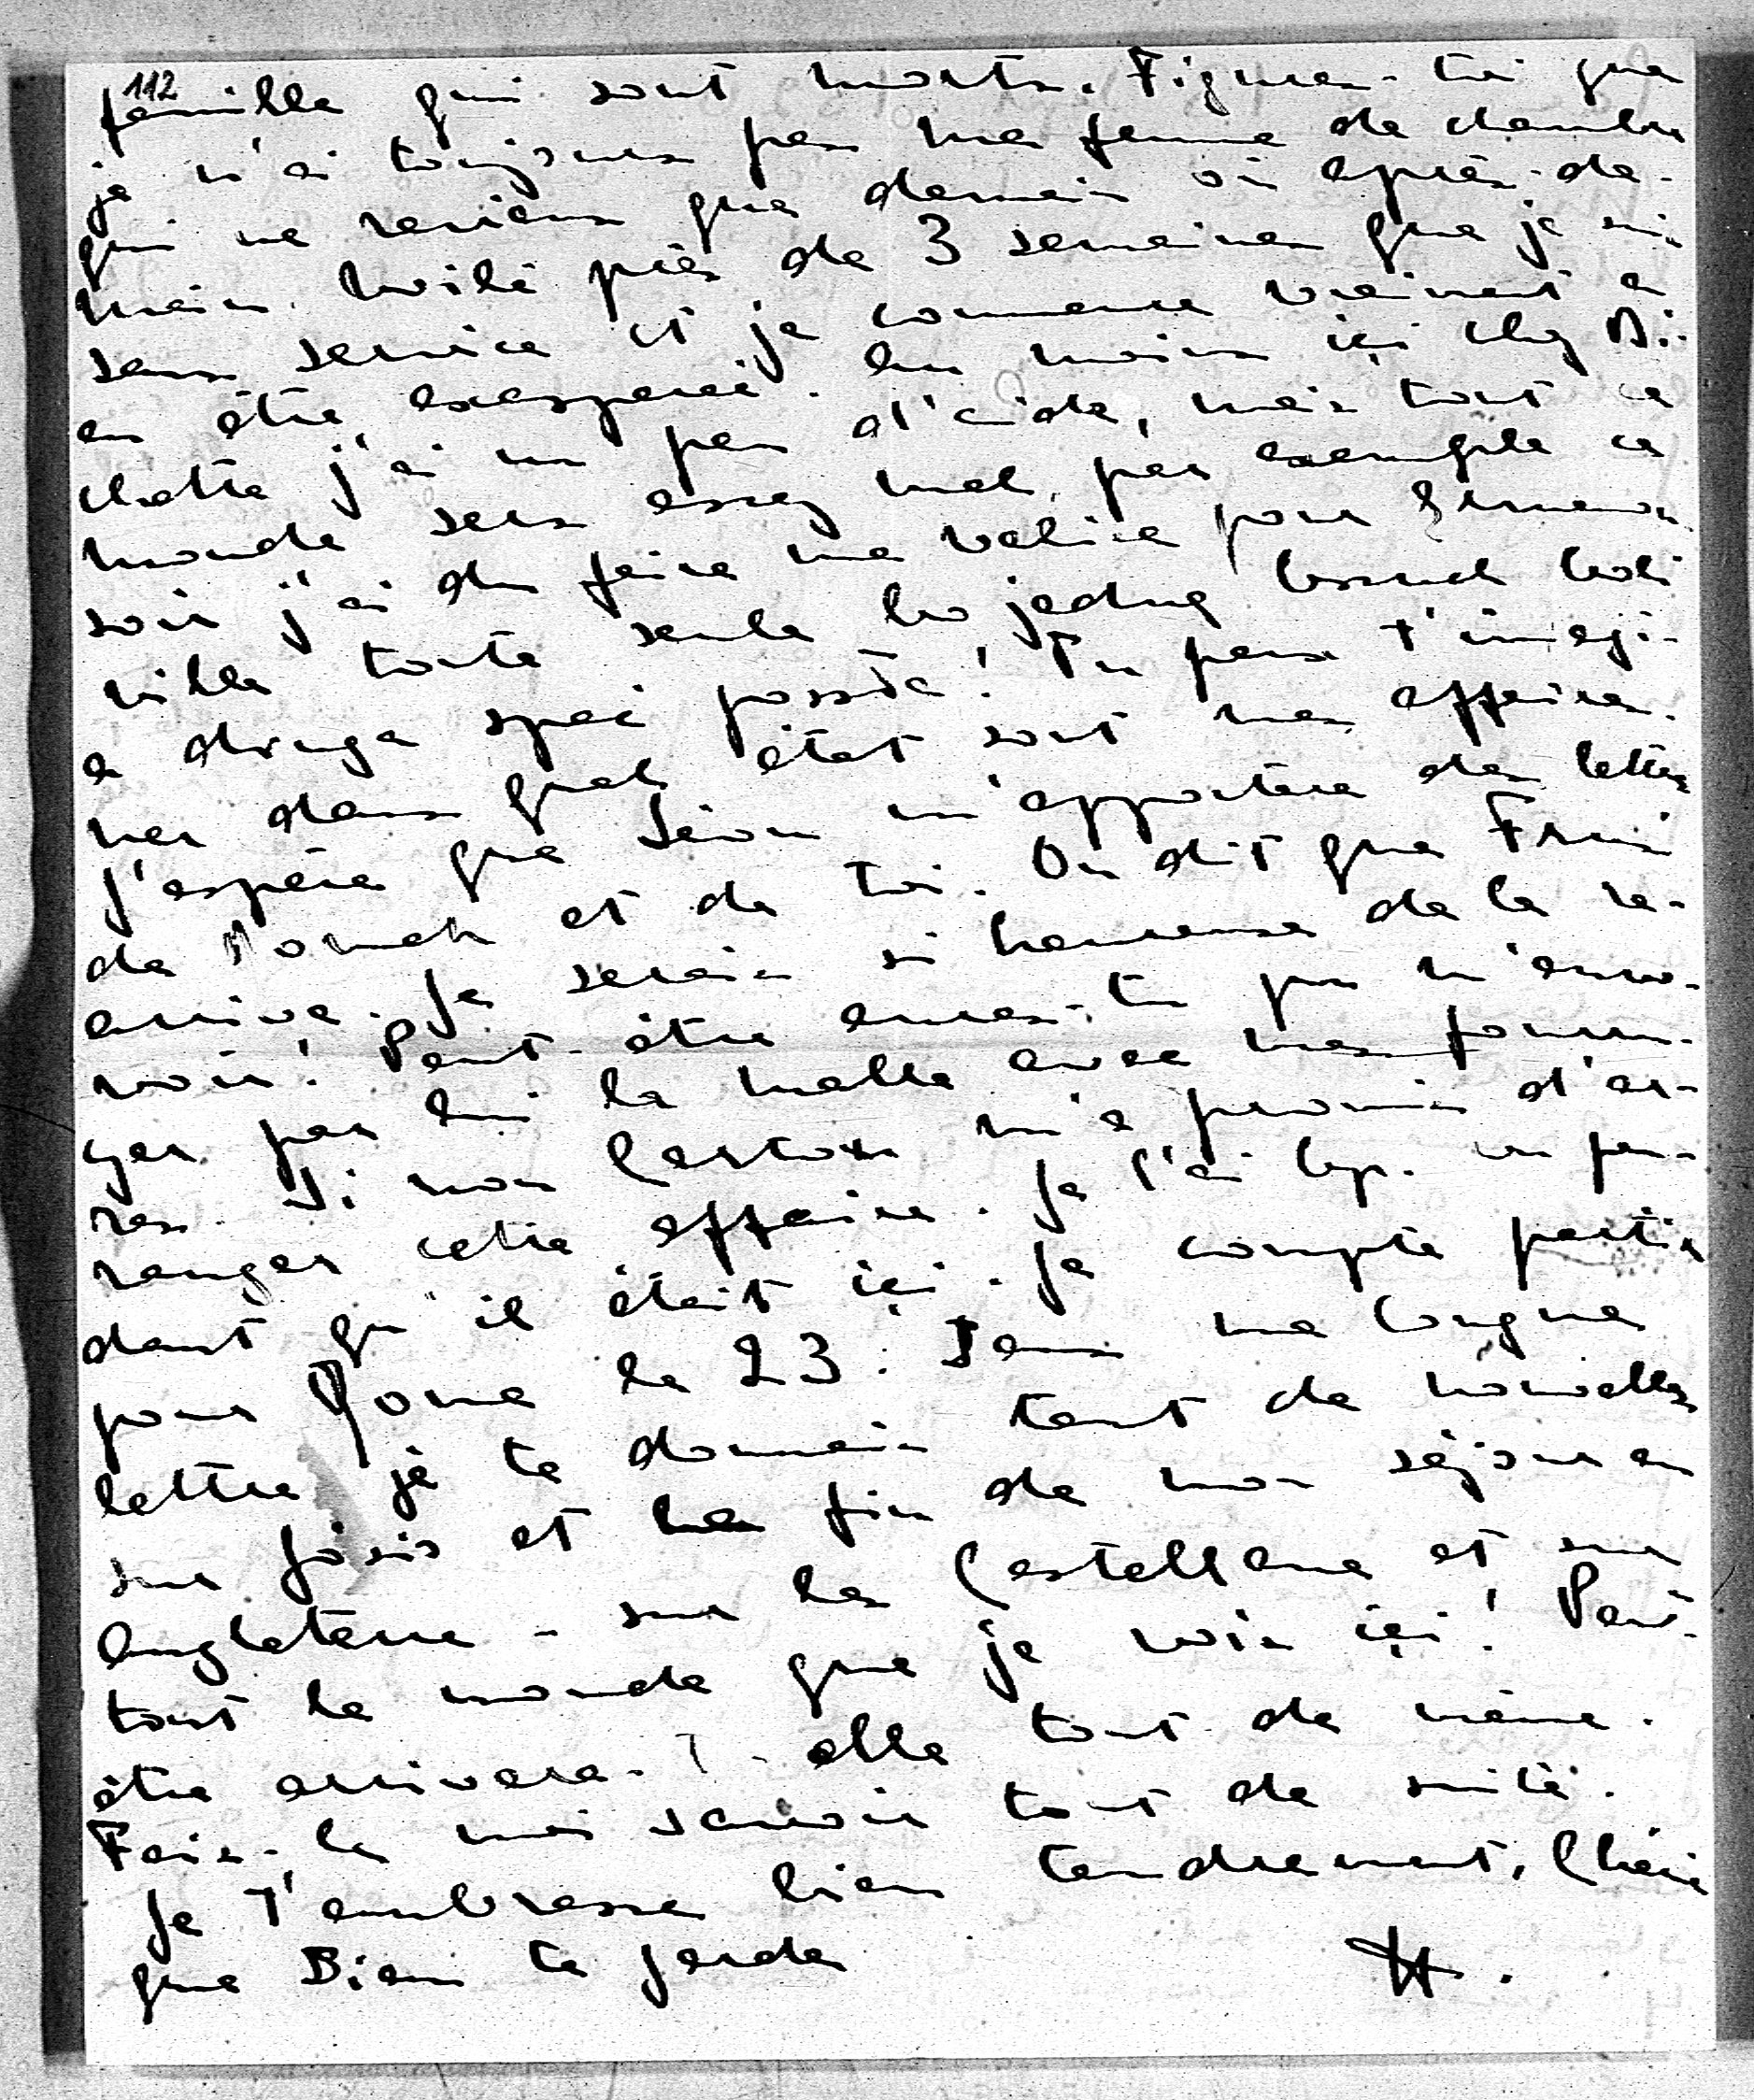 112
famille qui sont morts. Figures-toi que
je n'ai toujours pas ma femme de chambre
qui ne reviens que demain où après-de-
main. Voilà près de 3 semaines que je suis
sans service et je commence vraiment a
en être exasperée. Au moins içi chez Bi-
chette j'ai un peu d'aide, mais tout ce
monde sers assez mal, par exemple ce
soir j'ai du faire ma valise pour Ermenon
ville toute seule bo jedna boruch boli
a druga spać poszła! Tu peux t'imagi-
ner dans quel état sont mes affaires.
J'espère que Léon m'apportera des lettres
de Roman et de toi. On dit que Fruzia
arrive. Je serais si heureuse de la re-
voir! Peut-être auras-tu pu m'envo-
yer par lui la malle avec mes fourru-
res. Si non Caston m'a promis d'ar-
ranger cette affaire. Je l'ai vu pen-
dant qu'il était içi. Je compte partir
pour Rome le 23. Dans ma longue
lettre je te donnais tant de nouvelles
sur Józio et la fin de mon séjour en
Angleterre - sur les Castellane et sur
tout le monde que je vois içi! Peut-
être arrivera-t-elle tout de même.
Fais-le moi savoir tout de suite.
Je t'embrasse bien tendrement, Chérie
que Bien te garde H.